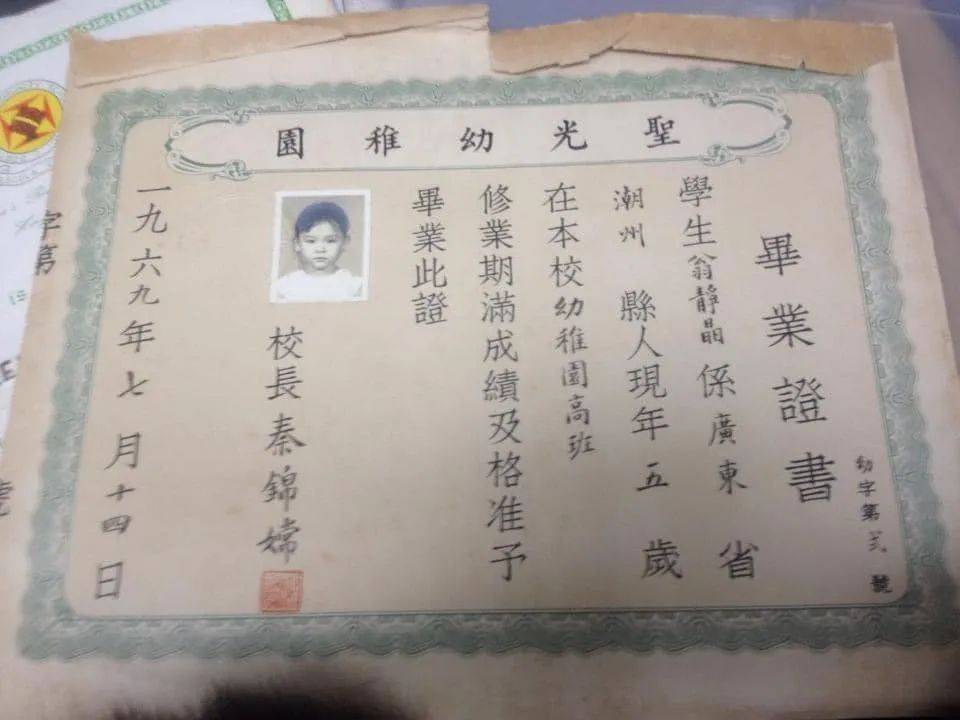 聖光幼稚園
畢業證書
幼字第弍號
學生翁靜晶係廣東省
潮州縣人現年五歲
在本校幼稚園高班
修業期滿成績及格准予
畢業此證
校長秦錦嫦
一九六九年七月十四日
字第